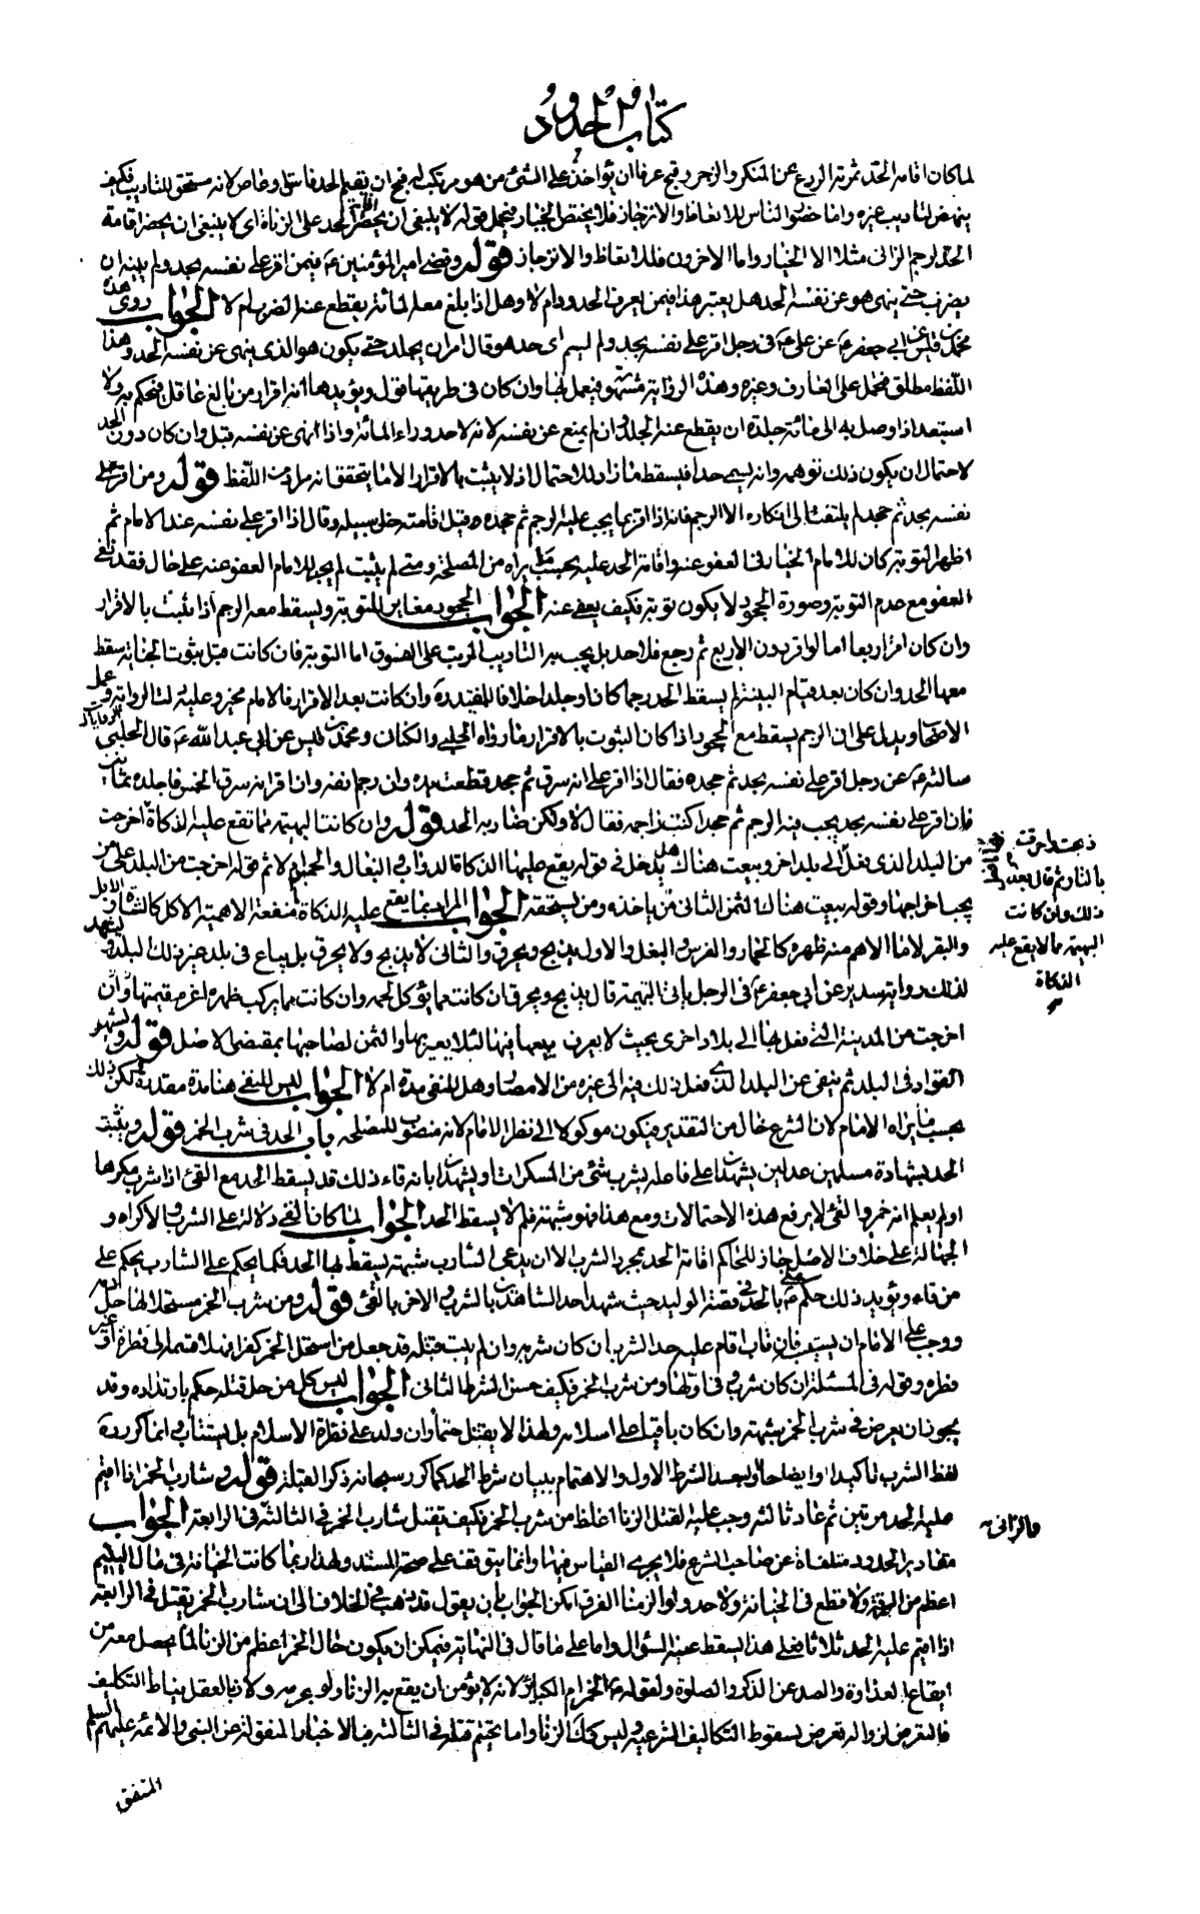 كتاب الحدود
لما كان اقامة الحد ثمرته الردع عن المنكر والزجر وقبح عرفا ان يؤاخذ على الشئ من هو مرتكبه قبح ان يقيم الحد فاسق وخاص لانه مستحق للتاديب فكيف
ينهض لتاديب غيره واما حضور الناس للاتعاظ والانزجار فلا يختص الخيار فيحمل قوله لا ينبغى ان يحضر الحد على الزناة اى لا ينبغى ان يحضر اقامة
الحد لرجم الزانى مثلا الا الخيار واما الاخرون فللاتعاظ والانزجار قوله وقضى امير المؤمنين ع فيمن اقر على نفسه بحد ولم يبينه ان
يضرب حتى ينهى هو عن نفسه الحد هل يعتبر هذا فيمن يعرف الحدود ام لا وهل اذا بلغ معه المائة يقطع عنه الضرب ام لا الجواب هذه روى
محمد بن قيس عن ابى جعفر ع عن على ع فى رجل اقر على نفسه بحد ولم يسم اى حد هو قال امر ان يجلد حتى يكون هو الذى ينهى عن نفسه الحد وهذا
اللفظ مطلق فيحمل على العارف وغيره وهذه الرواية مشهورة فيعمل بها وان كان فى طريقها قول ويؤيدها انه اقرار من بالغ عاقل فيحكم به ولا
استبعد اذا وصل به الى مائة جلدة ان يقطع عنه الجلد وان لم يمنع عن نفسه لانه لا حد وراء المائة واذا انهى عن نفسه قبل وان كان دون الحد
لاحتمال ان يكون ذلك توهمه وانه يسمى حدا فيسقط ما زاد للاحتمال اذ لا يثبت بالاقرار الا ما يتحقق انه مراد من اللفظ قوله ومن اقر على
نفسه بحد ثم جحد لم يلتفت الى انكاره الا الرجم فانه اذا اقر بما يجب عليه الرجم ثم جحده قبل اقامته خلى سبيله وقال اذا اقر على نفسه عند الامام ثم
اظهر التوبة كان للامام الخيار فى العفو عنه واقامة الحد عليه بحسب ما يراه من المصلحة ومتى لم يتب لم يجز للامام العفو عنه على حال فقد نفى
العفو مع عدم التوبة وصورة الجحود لا يكون توبة فكيف يعفى عنه الجواب الجحود مغاير للتوبة ويسقط معه الرجم اذا ثبت بالاقرار
وان كان اقرار اربعا اما لو اقر بدون الاربع ثم رجع فلا حد بل يجب به التاديب المرتب على الفسوق اما التوبة فان كانت قبل ثبوت الجناية سقط
معها الحد وان كان بعد قيام البينة لم يسقط الحد رجما كان او جلدا خلافا للمفيد ره وان كانت بعد الاقرار فالامام مخير وعليه لنا الرواية وعمل
الاصحاب ويدل على ان الرجم يسقط مع الجحود اذا كان الثبوت بالاقرار ما رواه الحلبى والكنانى ومحمد بن قيس عن ابى عبد الله ع قال الحلبى
سالته ع عن رجل اقر على نفسه بحد ثم جحده فقال اذا اقر على انه سرق ثم جحد قطعت يده وان رجم انفه وان اقر انه شرب الخمر فاجلده ثمانين
فان اقر على نفسه بحد يجب فيه الرجم ثم جحد اكنت راجمه فقال لا ولكن ضاربه الحد قوله وان كانت البهيمة مما تقع عليه الذكاة اخرجت
من البلد الذى فعل الى بلد اخر وبيعت هناك هل يدخل فى قوله يقع عليها الذكاة الدواب والبغال والحمير ام لا ثم قوله اخرجت من البلد على من
يجب اخراجها وقوله بيعت هناك الثمن الثانى من ياخذه ومن يستحقه الجواب المراد بما يقع عليه الذكاة منفعة الاهمية الاكل كالشاة والابل
والبقر لا ما الاهم منه ظهره كالحمار والفرس والبغل والاول يذبح ويحرق والثانى لا يذبح ولا يحرق بل يباع فى بلد غير ذلك البلد ويشهد
لذلك رواية سدير عن ابى جعفر ع فى الرجل ياتى البهيمة قال يذبح ويحرق ان كانت مما يؤكل لحمه وان كانت مما يركب ظهره اغرم قيمتها وان
اخرجت من المدينة التى فعل بها الى بلاد اخرى بحيث لا يعرف يبيعها فيها لئلا يعير بها والثمن لصاحبها بمقتضى الاصل قوله ويشهر
القواد فى البلد ثم ينفى عن البلد الذى فعل ذلك فيه الى غيره من الامصار وهل للنفى مدة ام لا الجواب ليس للنفى هنا مدة مقدرة لكن ذلك
بحسب ما يراه الامام لان الشرع خال من التقدير فيكون موكولا الى نظر الامام لانه منصوب للمصلحة باب الحد فى شرب الخمر قوله ويثبت
الحد بشهادة مسلمين عدلين يشهدان على فاعله بشرب شئ من المسكرات او يشهدا بانه قاء ذلك قد يسقط الحد مع القئ اذا شرب مكرها
او لم يعلم انه خمر والقئ لا يرفع هذه الاحتمالات ومع هذا فهو شبهة فلم لا يسقط الحد الجواب لما كان القئ دلالة على الشرب والاكراه و
الجهالة على خلاف الاصل جاز للحاكم اقامة الحد بمجرد الشرب الا ان يدعى الشارب شبهة يسقط بها الحد فكما يحكم على الشارب يحكم على
من قاء ويؤيد ذلك حكم على ع بالحد فى قصة الوليد حيث شهد احد الشاهدين بالشرب والاخر بالقئ قوله ومن شرب الخمر مستحلا لها حل دمه
ووجب على الامام ان يستتيبه فان تاب اقام عليه حد الشرب ان كان شربه وان لم يتب قتله قد جعل من استحل الخمر كفرا فهلا قسمه الى فطرة او غير
فطرة وقوله فى المسئلة ان كان شرب فى اولها ومن شرب الخمر فكيف حسن الشرط الثانى الجواب ليس كل من حل قتله حكم بارتداده وقد
يجوز ان يعرض فى شرب الخمر شبهة وان كان باقيا على اسلامه ولهذا لا يقتل حتما وان ولد على فطرة الاسلام بل يستتاب وانما كرر ره
لفظ الشرب تاكيدا او ايضاحا ولبعد الشرط الاول والاهتمام ببيان شرط الحد كما كرر سبحانه ذكر القبلة قوله وشارب الخمر اذا اقيم
عليه الحد مرتين ثم عاد ثالثة وجب عليه القتل الزنا اغلظ من شرب الخمر فكيف يقتل شارب الخمر فى الثالثة فى الرابعة الجواب
مقادير الحدود متلقاة عن صاحب الشرع فلا يجرى القياس فيها وانما يتوقف على صحة المستند ولهذا ربما كانت الخيانة فى مال اليتيم
اعظم من السرقة ولا قطع فى الخيانة ولا حد ولو الزمنا الفرق امكن الجواب بان يقول قد ذهب فى الخلاف الى ان شارب الخمر يقتل فى الرابعة
اذا اقيم عليه الحد ثلاثا فعلى هذا يسقط عنه السؤال واما على ما قال فى النهاية فيمكن ان يكون حال الخمر اعظم من الزنا لما يحصل معه من
ايقاع العداوة والصد عن الذكر والصلوة ولقوله ع الخمر ام الكبائر لانه لا يؤمن ان يقع به الزنا ولو بمحرمه ولان بالعقل يناط التكليف
فالتعرض لزواله تعرض لسقوط التكاليف الشرعية وليس كذلك الزنا واما تحتم قتله فى الثالثة فبالاخبار المنقولة عن النبى والائمة عليهم السلم
المتفق
ذبحت واحرقت
بالنار ثم قال بعد
ذلك وان كانت
البهيمة مما لا يقع عليه
الذكاة
والزانى